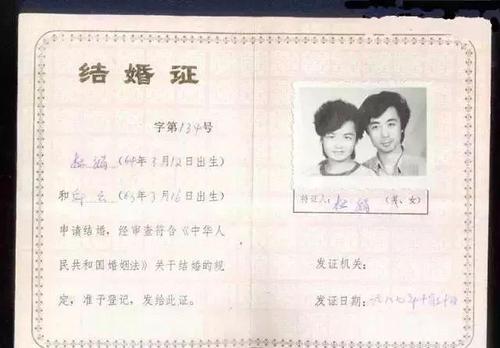 结婚证
字第134号
杜娟(64年3月12日出生)
和 云(63年7月16日出生)
申请结婚，经审查符合《中华人
民共和国婚姻法》关于结婚的规
定，准予登记，发给此证。
持证人:杜娟(男、女)
发证机关:
发证日期:一九八七年十月